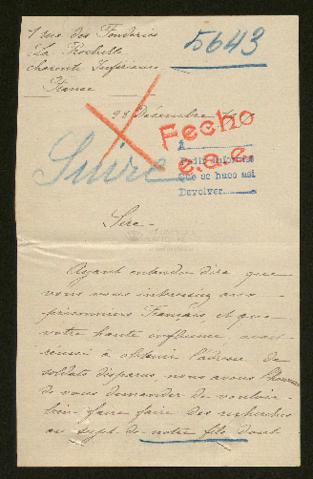 7 rue des Fonderies
La Rochelle
charente Inférieure
France
5643
28 Décembre
Fecho
e.a.e.
Suire
A
Pedir informe
que se hace así
Devolver
Sire -
Ayant entendu dire que
vous vous intéressiez aux
prisonniers Français et que
votre haute influence avait
réussi à obtenir l'adresse de
soldats disparus, nous avons l'honneur
de vous demander de vouloir
bien faire faire des recherches
au sujet de notre fils dont